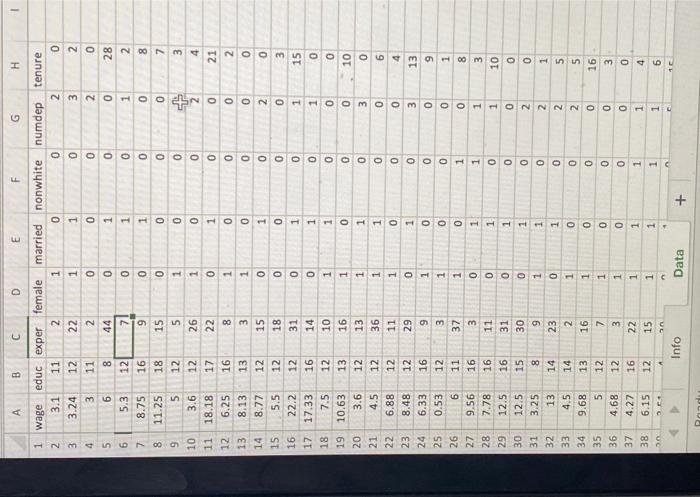 A B C D E F G H I
1 wage educ exper female married nonwhite numdep tenure
2 3.1 11 2 1 0 0 2 0
3 3.24 12 22 1 1 0 3 2
4 3 11 2 0 0 0 2 0
5 6 8 44 0 1 0 0 28
6 5.3 12 7 0 1 0 1 2
7 8.75 16 9 0 1 0 0 8
8 11.25 18 15 0 0 0 0 7
9 5 12 5 1 0 0 3
10 3.6 12 26 1 0 0 2 4
11 18.18 17 22 0 1 0 0 21
12 6.25 16 8 1 0 0 0 2
13 8.13 13 3 1 0 0 0 0
14 8.77 12 15 0 1 0 2 0
15 5.5 12 18 0 0 0 0 3
16 22.2 12 31 0 1 0 1 15
17 17.33 16 14 0 1 0 1 0
18 7.5 12 10 1 1 0 0 0
19 10.63 13 16 1 0 0 0 10
20 3.6 12 13 1 1 0 3 0
21 4.5 12 36 1 1 0 0 6
22 6.88 12 11 1 0 0 0 4
23 8.48 12 29 0 1 0 3 13
24 6.33 16 9 1 0 0 0 9
25 0.53 12 3 1 0 0 0 1
26 6 11 37 1 0 1 0 8
27 9.56 16 3 0 1 1 1 3
28 7.78 16 11 0 1 0 1 10
29 12.5 16 31 0 1 0 0 0
30 12.5 15 30 0 1 0 2 0
31 3.25 8 9 1 1 0 2 1
32 13 14 23 0 1 0 2 5
33 4.5 14 2 1 0 0 2 5
34 9.68 13 16 1 0 0 0 16
35 5 12 7 1 0 0 0 3
36 4.68 12 3 1 0 0 0 0
37 4.27 16 22 1 1 1 1 4
38 6.15 12 15 1 1 1 1 6
Info Data +